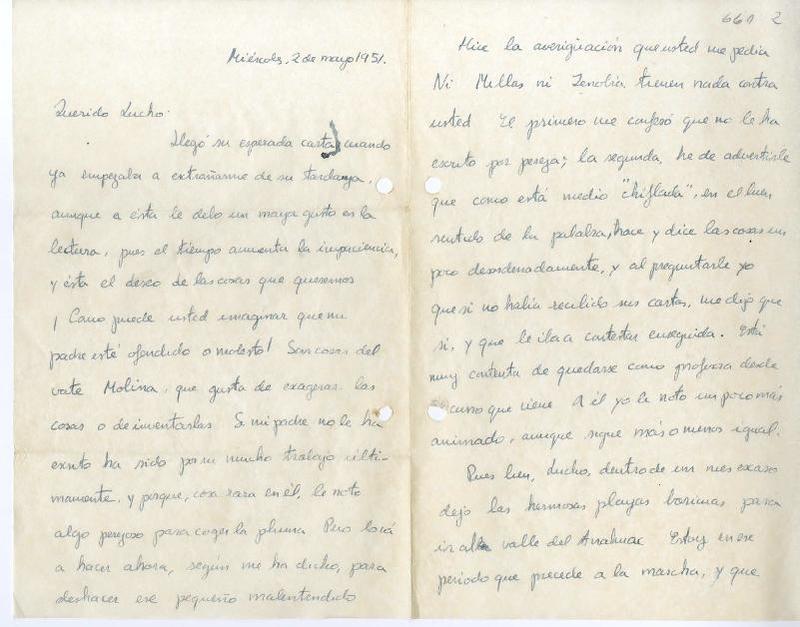 Miércoles, 2 de mayo 1951.
Querido Lucho:
Llegó su esperada carta cuando
ya empezaba a extrañarme de su tardanza,
aunque a ésta le debo un mayor gusto en la
lectura, pues el tiempo aumenta la impaciencia,
y ésta el deseo de las cosas que queremos
¡Como puede usted imaginar que mi
padre esté ofendido o molesto! Son cosas del
vate Molina, que gusta de exagerar las
cosas o de inventarlas Si mi padre no le ha
escrito ha sido por su mucho trabajo últi-
mamente, y porque, cosa rara en él, le noto
algo perezoso para coger la pluma Pero lo va
a hacer ahora, según me ha dicho, para
deshacer ese pequeño malentendido
661 2
Hice la averiguación que usted me pedía
Ni Millas ni Zenobia tienen nada contra
usted El primero me confesó que no le ha
escrito por pereza; la segunda, he de advertirle
que como está medio "chiflada", en el buen
sentido de la palabra, hace y dice las cosas un
poco desordenadamente, y al preguntarle yo
que si no había recibido sus cartas, me dijo que
si, y que le iba a contestar enseguida. Está
muy contenta de quedarse como profesora desde
curso que viene A él yo le noto un poco más
animado, aunque sigue más o menos igual.
Pues bien, Lucho, dentro de un mes escaso
dejo las hermosas playas boricuas para
ir al valle del Anahuac Estoy en ese
periodo que precede a la marcha, y que